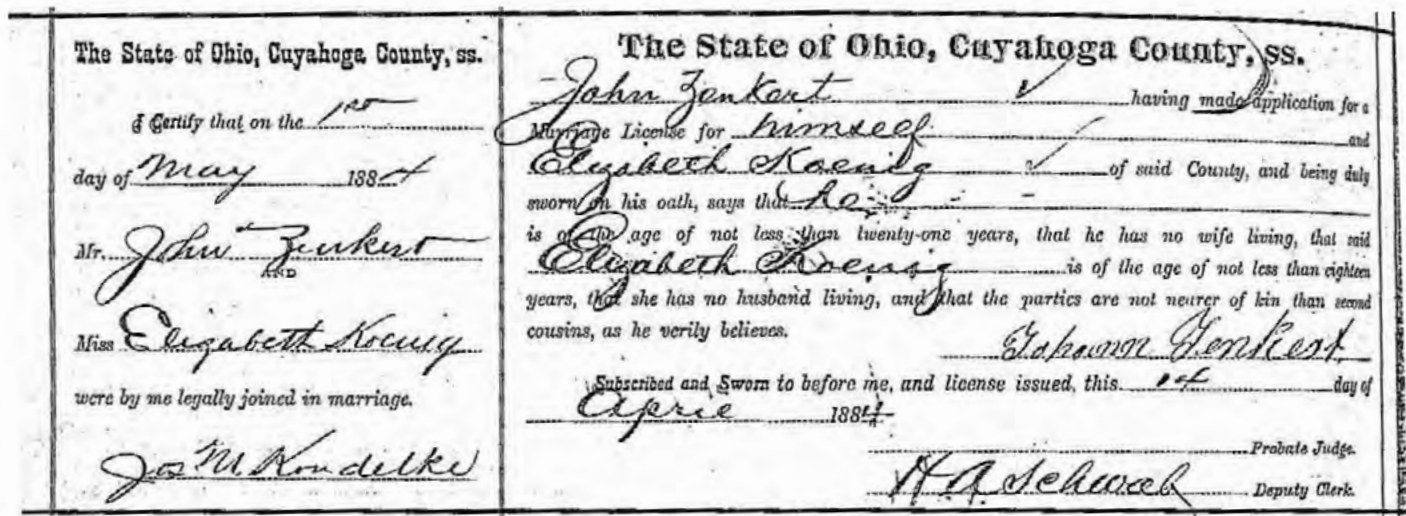 The State of Ohio, Cuyahoga County, ss.
I Certify that on the 1st
day of May 1884
Mr. John Zenkert
AND
Miss Elizabeth Koenig
were by me legally joined in marriage.
Jos M. Koudelke
The State of Ohio, Cuyahoga County, ss.
John Zenkert having made application for a
Marriage License for himself and
Elizabeth Koenig of said County, and being duly
sworn on his oath, says that he
is of the age of not less than twenty-one years, that he has no wife living, that said
Elizabeth Koenig is of the age of not less than eighteen
years, that she has no husband living, and that the parties are not nearer of kin than second
cousins, as he verily believes.
Johann Zenkert
Subscribed and Sworn to before me, and license issued, this 14 day of
April 1884
Probate Judge.
H A Schwab Deputy Clerk.